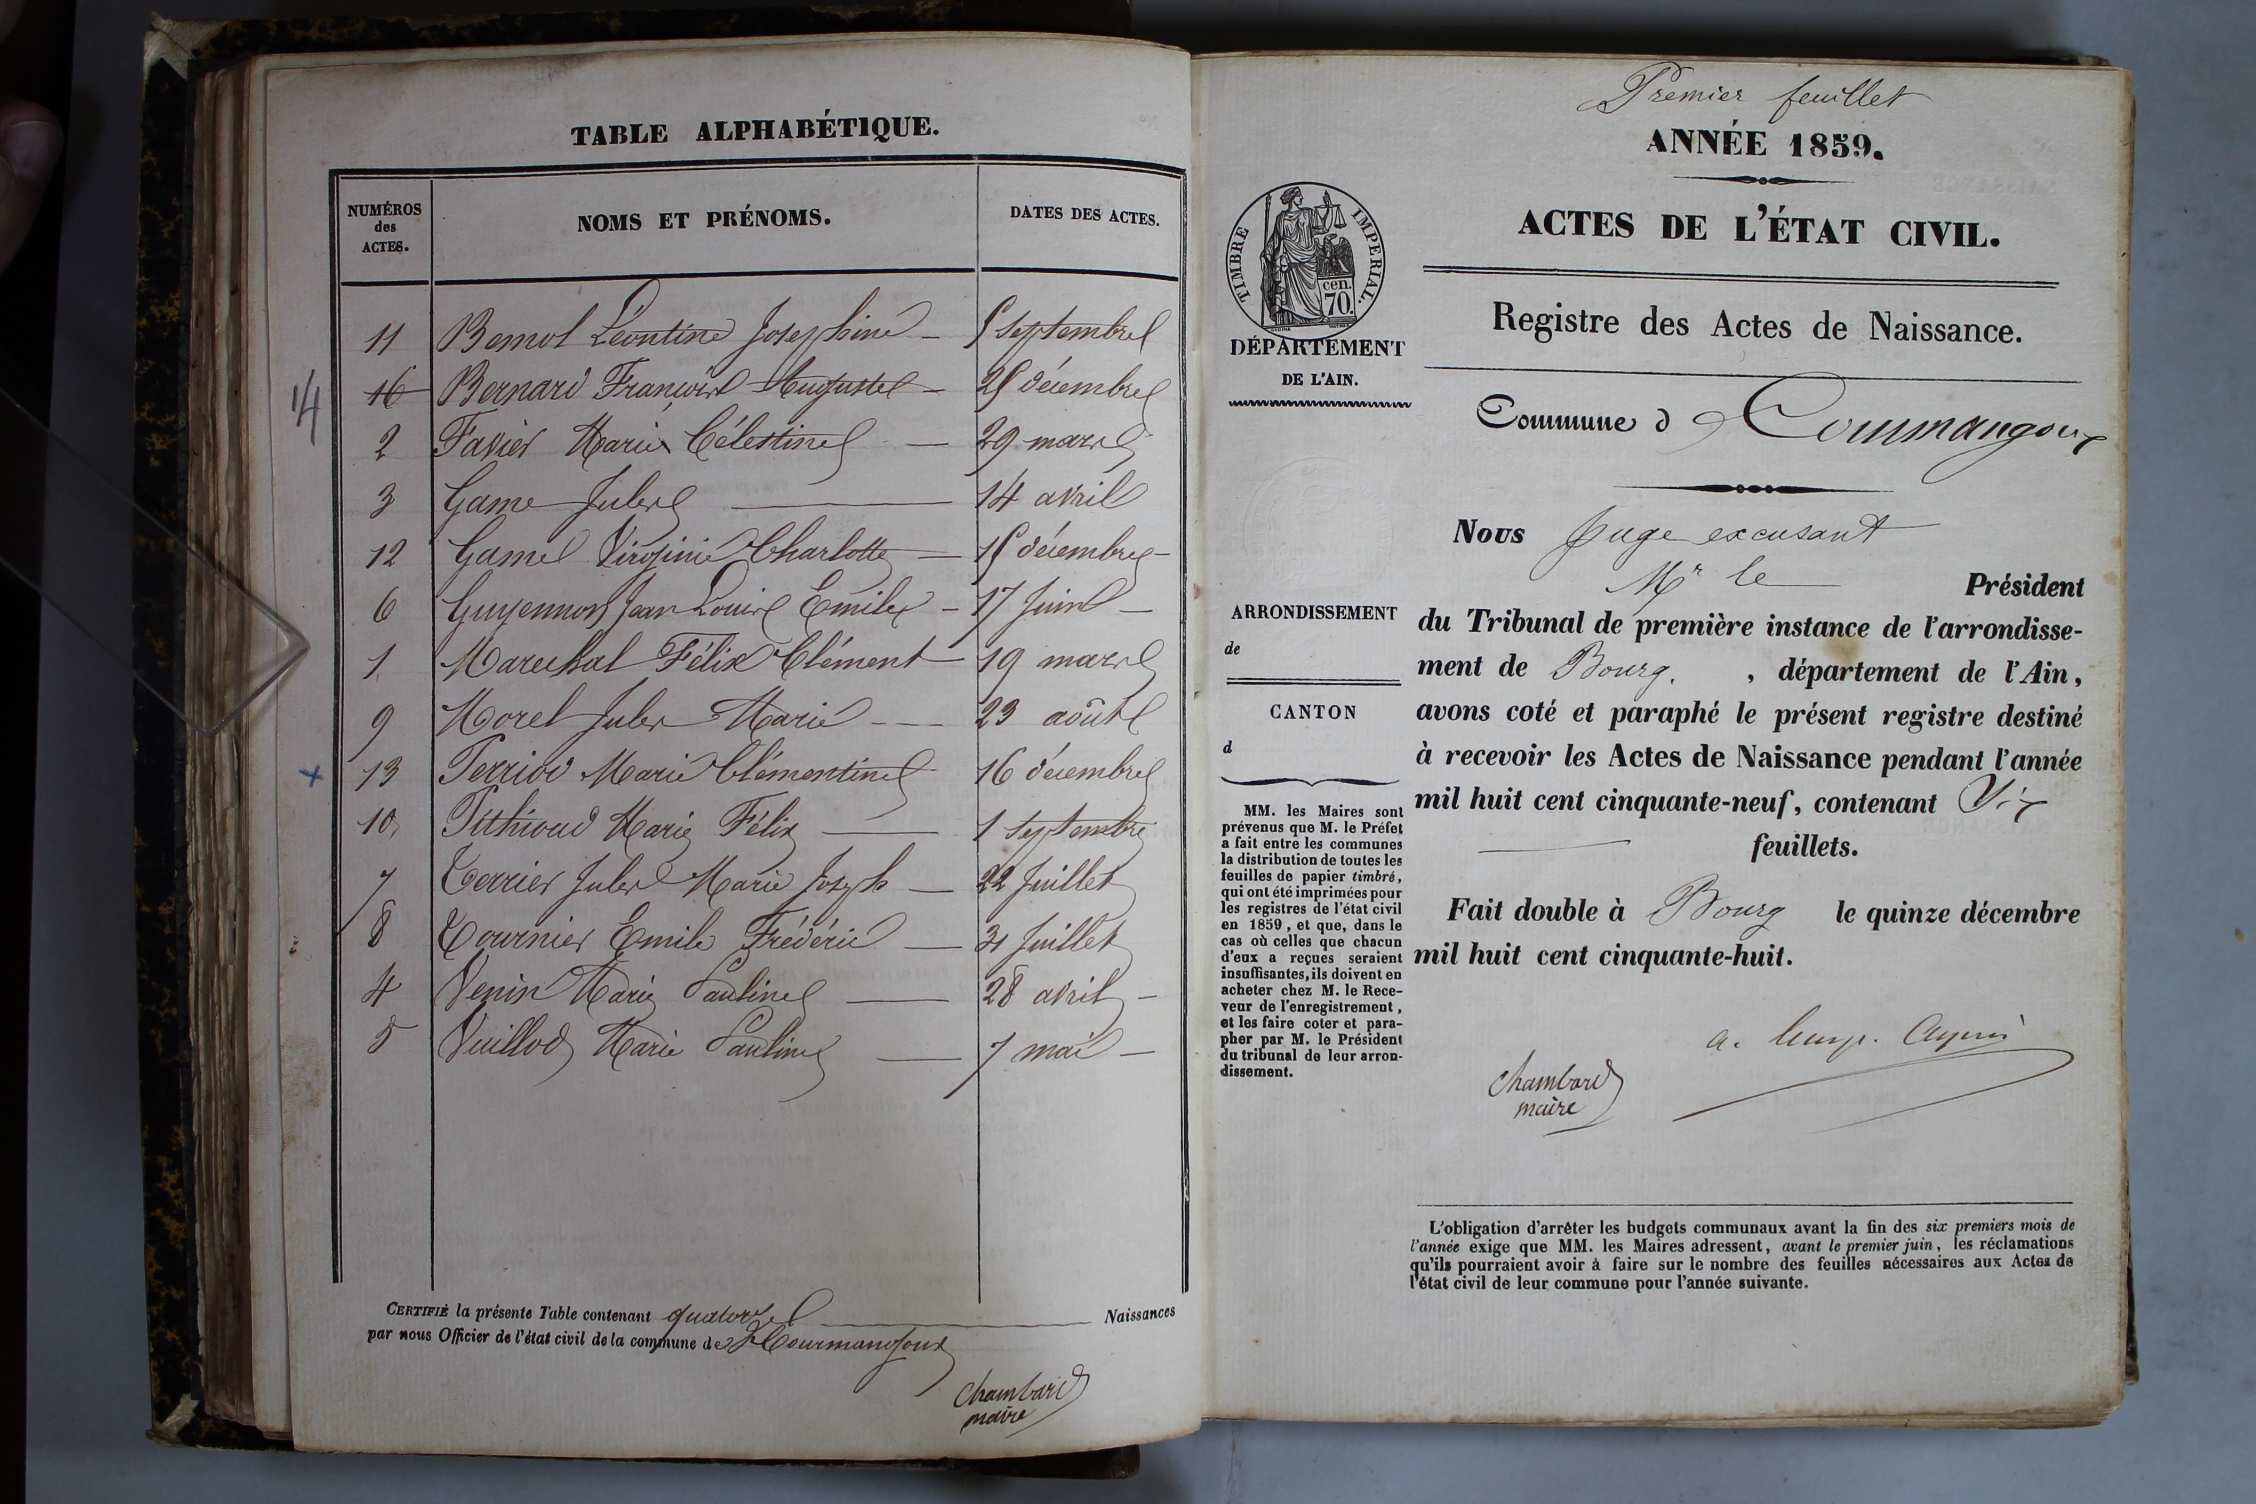 TABLE ALPHABÉTIQUE.
NUMÉROS des ACTES.
NOMS ET PRÉNOMS.
DATES DES ACTES.
11 Bemol Léontine Joséphine 5 septembre
14 16 Bernard François Auguste 25 décembre
2 Favier Marie Célestine 29 mars
3 Game Jules 14 avril
12 Game Virginie Charlotte 15 décembre
6 Guyennon Jean Louis Emile 17 Juin
1 Marechal Félix Clément 19 mars
9 Morel Jules Marie 23 août
+ 13 Perriod Marie Clémentine 16 décembre
10 Marie Félix 1 septembre
7 Terrier Jules Marie Joseph 22 Juillet
8 Tournier Emile Frédéric 31 Juillet
4 Venin Marie Pauline 28 avril
5 Vuillod Marie Pauline 7 mai
CERTIFIÉ la présente Table contenant quatorze Naissances
par nous Officier de l'état civil de la commune de Courmangoux
Chambard
maire
Premier feuillet
ANNÉE 1859.
ACTES DE L'ÉTAT CIVIL.
TIMBRE IMPERIAL.
cen.
70.
DÉPARTEMENT
DE L'AIN.
Registre des Actes de Naissance.
Commune d Courmangoux
Nous Juge excusant
Mr le Président
du Tribunal de première instance de l'arrondisse-
ment de Bourg. , département de l'Ain,
avons coté et paraphé le présent registre destiné
à recevoir les Actes de Naissance pendant l'année
mil huit cent cinquante-neuf, contenant Six
feuillets.
Fait double à Bourg le quinze décembre
mil huit cent cinquante-huit.
Chambard
maire
ARRONDISSEMENT
de
CANTON
d
MM. les Maires sont
prévenus que M. le Préfet
a fait entre les communes
la distribution de toutes les
feuilles de papier timbré,
qui ont été imprimées pour
les registres de l'état civil
en 1859, et que, dans le
cas où celles que chacun
d'eux a reçues seraient
insuffisantes, ils doivent en
acheter chez M. le Rece-
veur de l'enregistrement,
et les faire coter et para-
pher par M. le Président
du tribunal de leur arron-
dissement.
L'obligation d'arrêter les budgets communaux avant la fin des six premiers mois de
l'année exige que MM. les Maires adressent, avant le premier juin, les réclamations
qu'ils pourraient avoir à faire sur le nombre des feuilles nécessaires aux Actes de
l'état civil de leur commune pour l'année suivante.